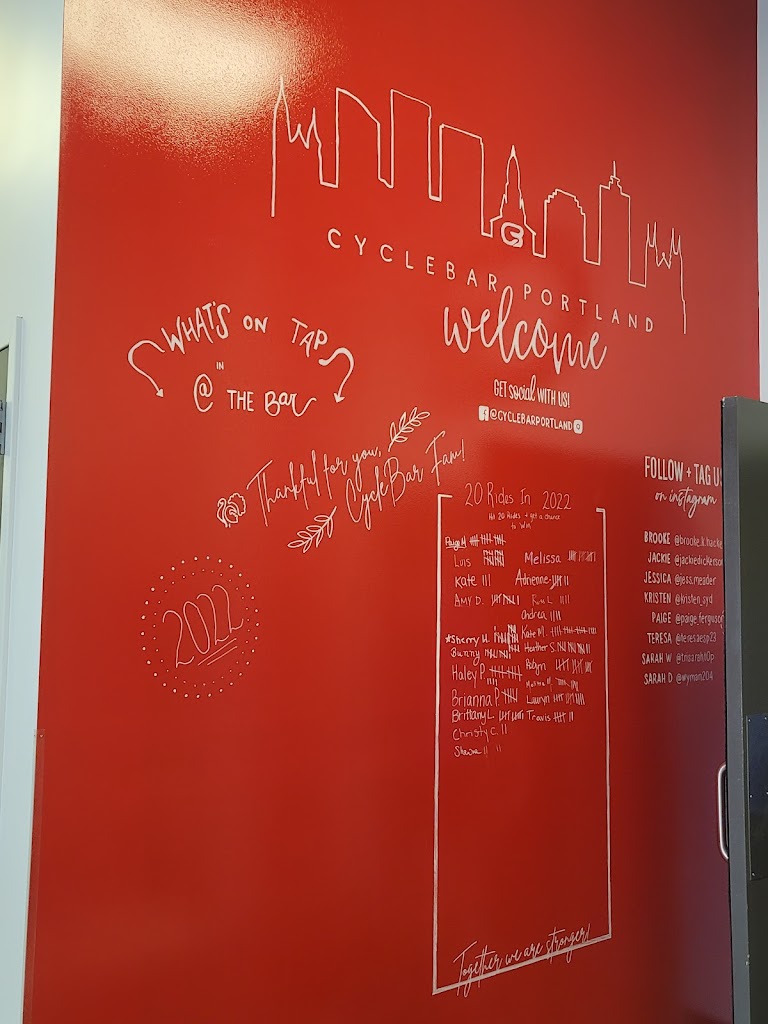 CYCLEBAR PORTLAND
welcome
GET social WITH US!
@CYCLEBARPORTLAND
WHAT'S ON TAP
IN
@ THE BAR
Thankful for you,
CycleBar Fam!
2022
20 Rides In 2022
Hit 20 Rides + get a chance
to "Win"
Paige H
Luis
Melissa
Kate
Adrienne
Amy D.
Andrea
*Sherry H.
Kate M.
Bunny
Heather S.
Haley P.
Robyn
Melissa M.
Brianna P.
Lauryn
Brittany L.
Travis
Christy C.
Shawna
Together we are stronger!
FOLLOW + TAG US
on instagram
BROOKE @brooke.k.hacke
JACKIE @jackiedickerson
JESSICA @jess.meader
KRISTEN @kristen_syd
PAIGE @paige.ferguson
TERESA @teresaesp23
SARAH W
SARAH D @wyman204